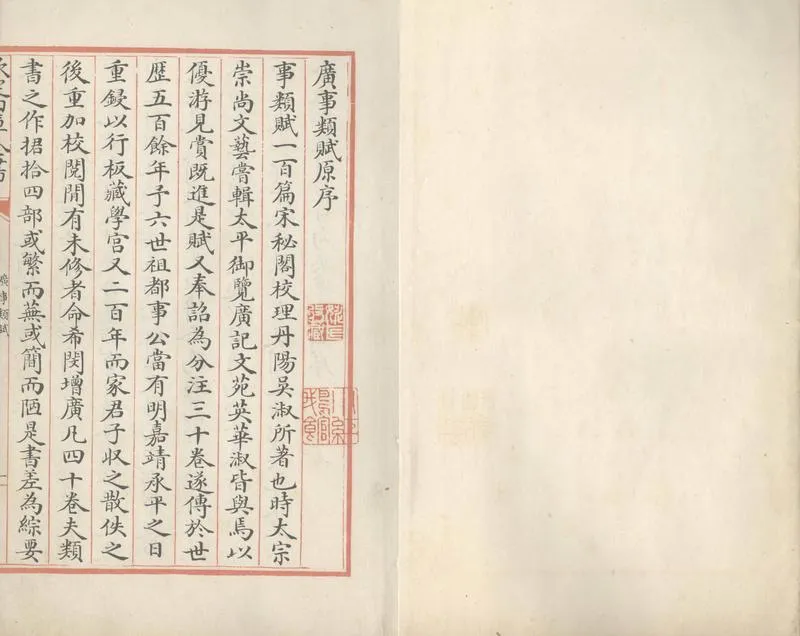 廣事類賦原序
事類賦一百篇宋秘閣校理丹陽吳淑所著也時太宗
崇尚文藝嘗輯太平御覽廣記文苑英華淑皆與焉以
優游見賞既進是賦又奉詔為分注三十卷遂傳於世
歷五百餘年予六世祖都事公當有明嘉靖承平之日
重鋟以行板藏學宮又二百年而家君子収之散佚之
後重加校閱間有未修者命希閔增廣凡四十卷夫類
書之作捃拾四部或繁而蕪或簡而陋是書差為綜要
廣事類賦